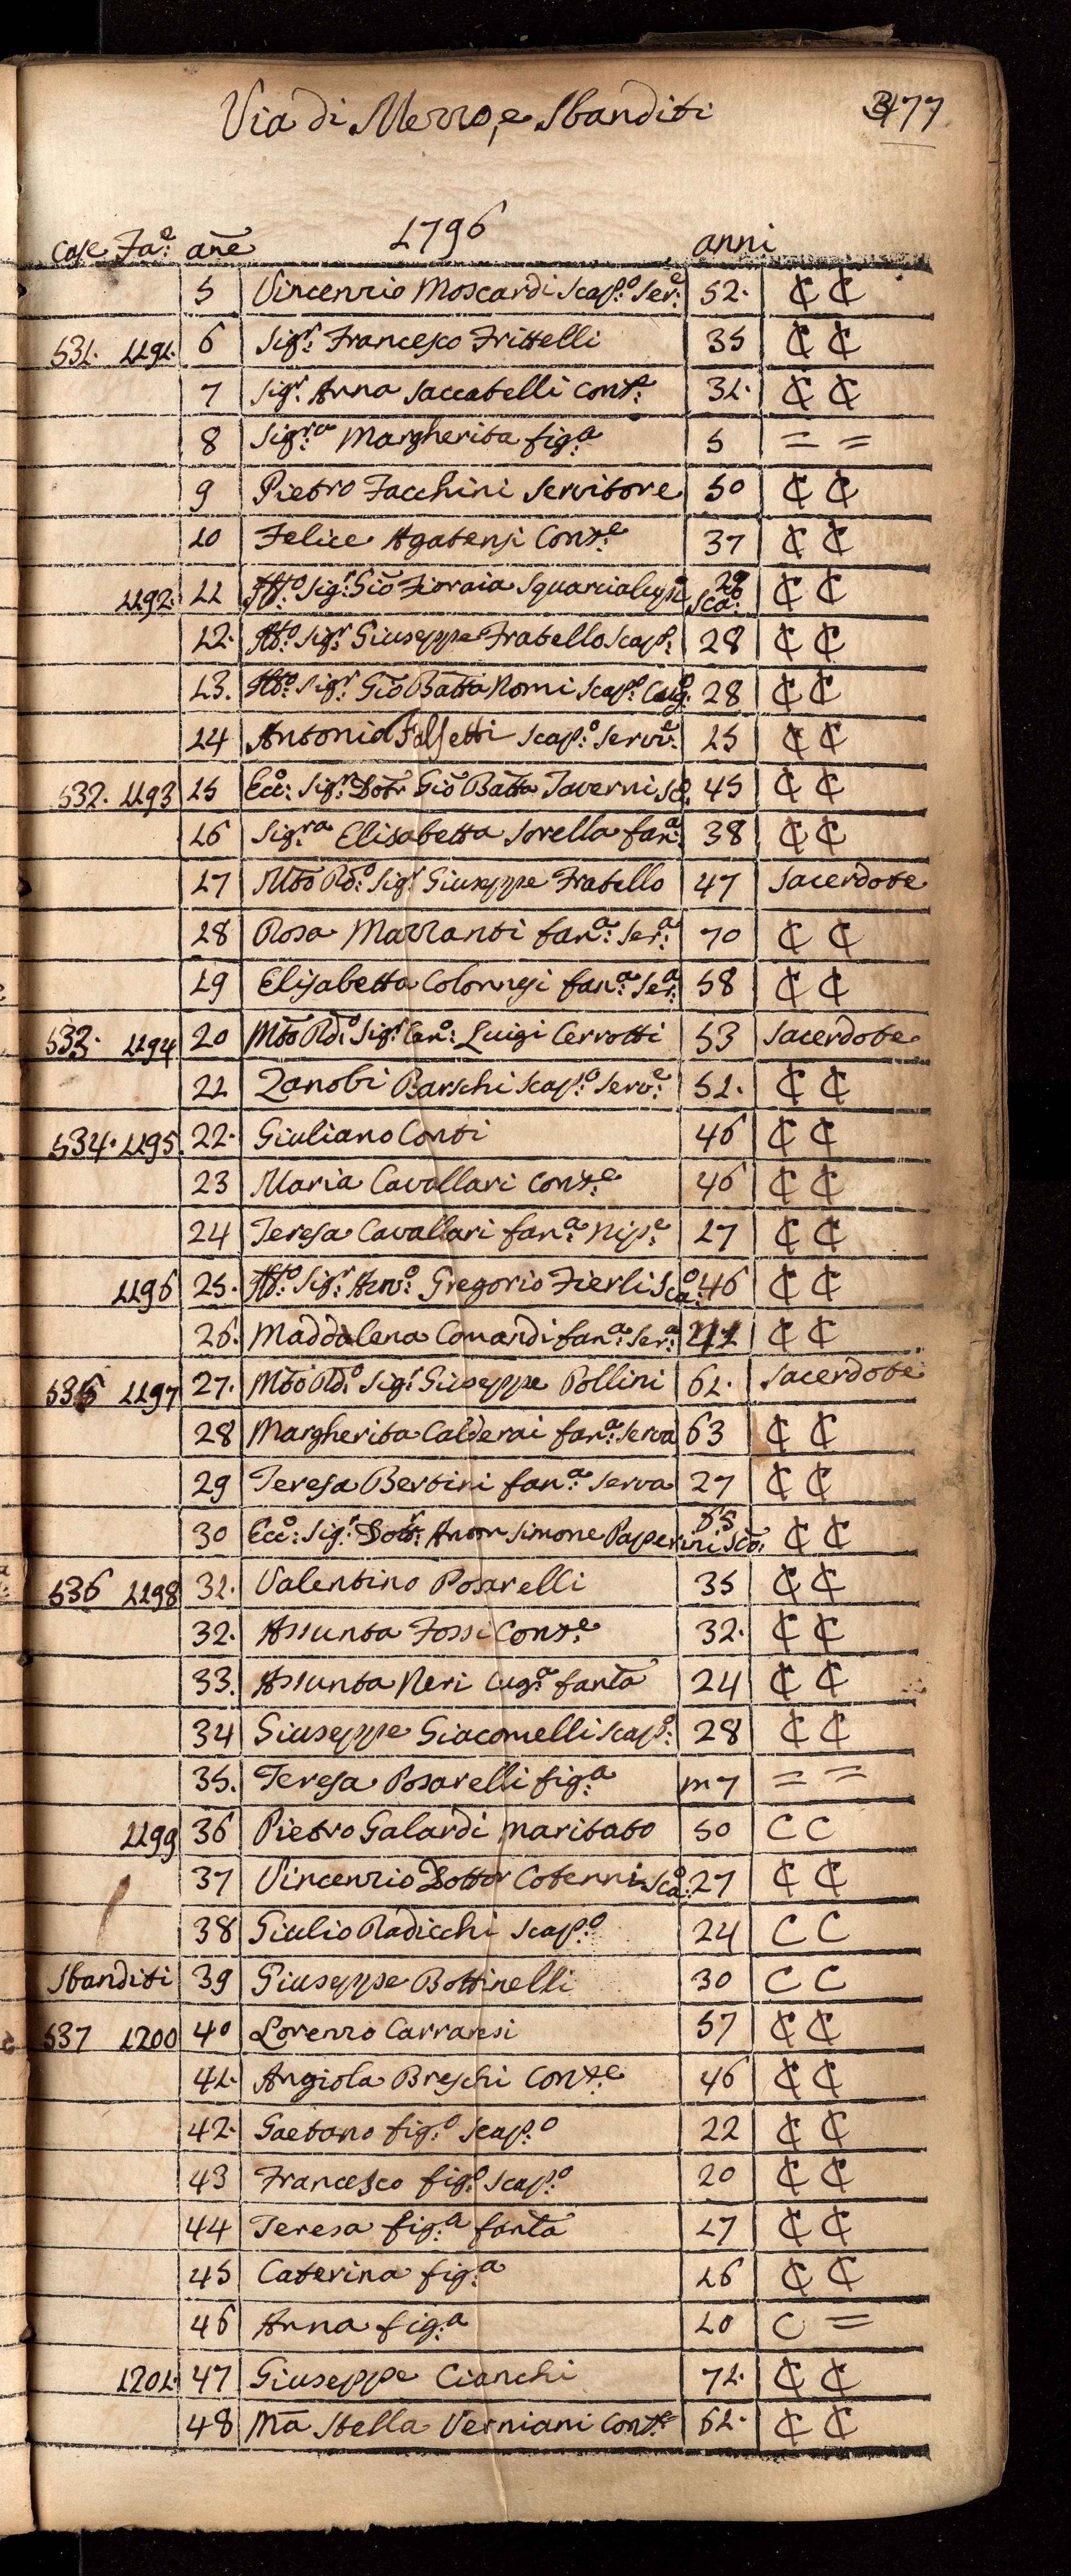 Via di Mezzo, e Sbanditi 377
1796
Case Fa:e añe anni
5 Vincenzio Moscardi Scap:o Ser:e 52. ₵ ₵
531. 1191. 6 Sig:r Francesco Frittelli 35 ₵ ₵
7 Sig:r Anna Saccatelli Cons:e 31. ₵ ₵
8 Sig:ra Margherita fig:a 5 = =
9 Pietro Facchini Servitore 50 ₵ ₵
10 Felice Agatensi Cons:e 37 ₵ ₵
1192. 11 Att:o Sig:r Gio Fioraia Squarcialupi Sca:o 29 ₵ ₵
12. Att:o Sig:r Giuseppe Fratello Scap: 28 ₵ ₵
13. Att:o Sig:r Gio Batta Nomi Scap:o Cog:o 28 ₵ ₵
14 Antonio Falsetti Scap:o Serv:e 25 ₵ ₵
532. 1193 15 Ecc:o Sig:r Dottr Gio Batta Taverni Sc: 45 ₵ ₵
16 Sig:ra Elisabetta Sorella fan:a 38 ₵ ₵
17 Mto Rd:o Sig:r Giuseppe Fratello 47 Sacerdote
18 Rosa Mazzanti fan:a Ser:a 70 ₵ ₵
19 Elisabetta Colonnesi fan:a Ser:a 58 ₵ ₵
533. 1194 20 Mto Rd:o Sig:r Can:o Luigi Cerrotti 53 Sacerdote
21 Zanobi Barschi Scap:o Serv:e 51. ₵ ₵
534. 1195. 22. Giuliano Conti 46 ₵ ₵
23 Maria Cavallari Cons:e 46 ₵ ₵
24 Teresa Cavallari fan:a Nip:e 17 ₵ ₵
1196 25. Att:o Sig:r Anto: Gregorio Fierli Sca:o 46 ₵ ₵
26. Maddalena Comandi fan:a Ser:a 41 ₵ ₵
535 1197 27. Mto Rd:o Sig:r Giuseppe Pollini 61. Sacerdote
28 Margherita Calderai fan:a Serva 63 ₵ ₵
29 Teresa Bertini fan:a Serva 27 ₵ ₵
30 Ecc:o Sig:r Dottr: Anton Simone Paperini Sco: 65 ₵ ₵
536 1198 31. Valentino Posarelli 35 ₵ ₵
32. Assunta Fossi Cons:e 32. ₵ ₵
33. Assunta Neri Cug:a fanta 24 ₵ ₵
34 Giuseppe Giacomelli Scap:o 28 ₵ ₵
35. Teresa Posarelli fig:a m 7 = =
1199 36 Pietro Galardi maritato 50 C C
37 Vincenzio Dottor Cotenni Sca:o 27 ₵ ₵
38 Giulio Radicchi Scap:o 24 C C
Sbanditi 39 Giuseppe Bottinelli 30 C C
537 1200 40 Lorenzo Carraresi 57 ₵ ₵
41. Angiola Breschi Cons:e 46 ₵ ₵
42. Gaetano fig:o Scap:o 22 ₵ ₵
43 Francesco fig:o Scap:o 20 ₵ ₵
44 Teresa fig:a fanta 17 ₵ ₵
45 Caterina fig:a 16 ₵ ₵
46 Anna fig:a 10 C =
1201. 47 Giuseppe Cianchi 71. ₵ ₵
48 Ma Stella Verniani Cons:e 61. ₵ ₵